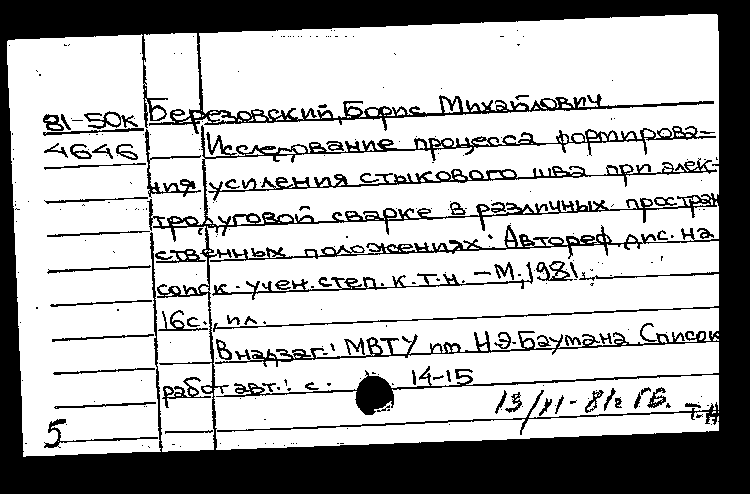 81-50к Березовский, Борис Михайлович
4646 Исследование процесса формирова=
ния усиления стыкового шва при элек-
тродуговой сварке в различных простран
ственных положениях: Автореф. дис. на
соиск. учен. степ. к.т.н. – М, 1981.
16с., ил.
В надзаг.: МВТУ им. Н.Э.Баумана Список
работ авт.: с. 14-15
13/XI-81г ГБ.
5